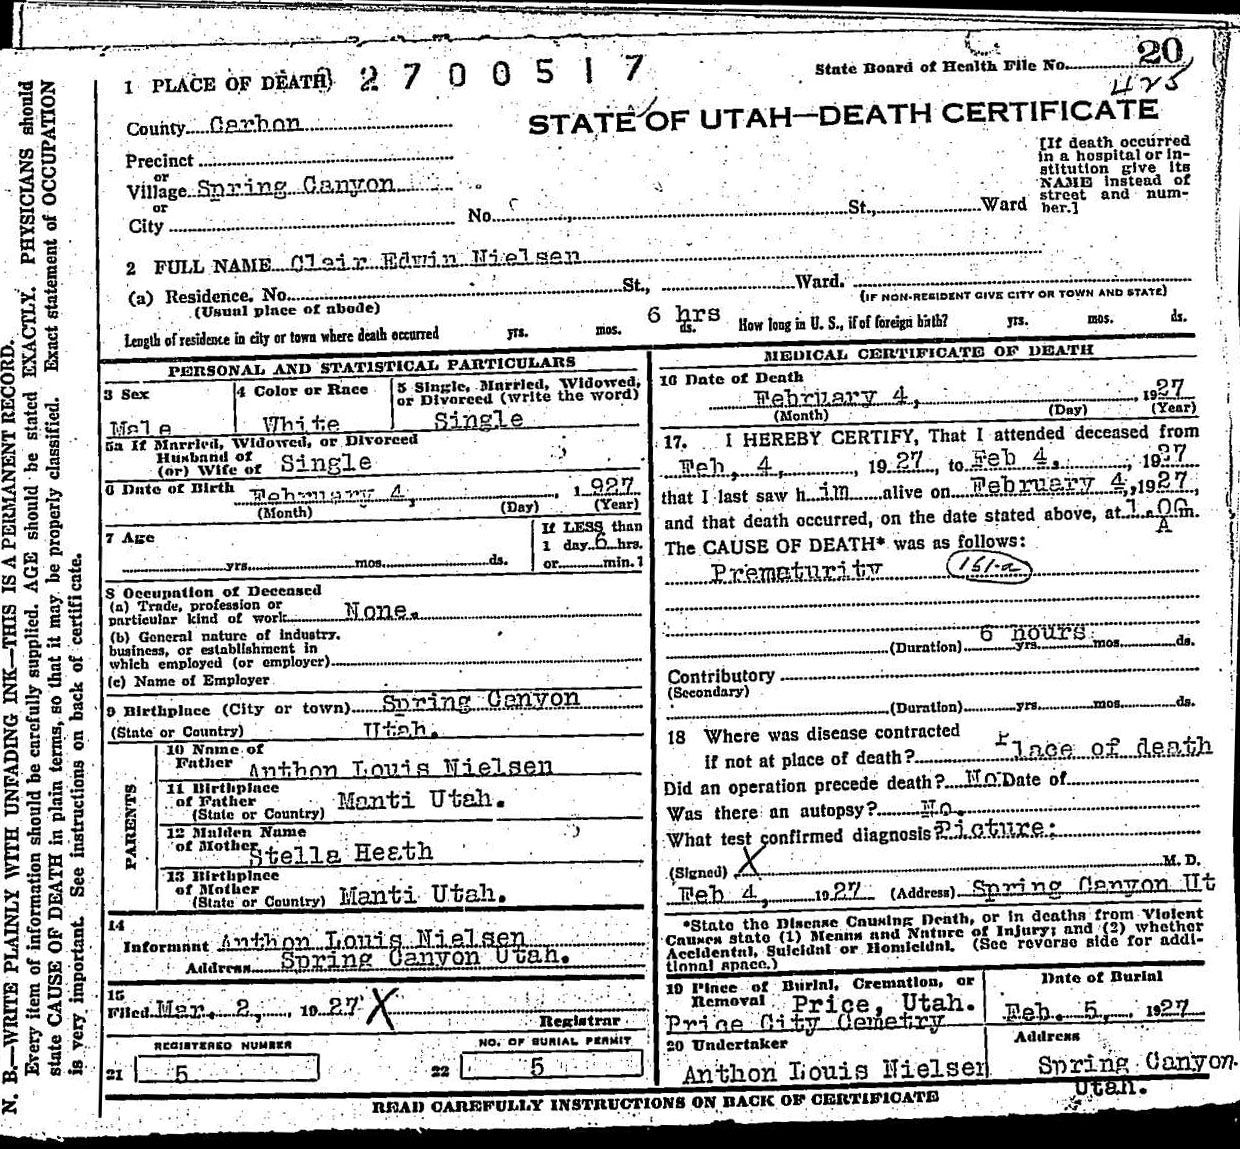 20
1 PLACE OF DEATH) 2700517 State Board of Health File No.
425
STATE OF UTAH—DEATH CERTIFICATE
County Carbon
Precinct
or
Village Spring Canyon
or
City No. St., Ward
[If death occurred
in a hospital or in-
stitution give its
NAME instead of
street and num-
ber.]
2 FULL NAME Clair Edwin Nielsen
(a) Residence. No. St., Ward.
(Usual place of abode) (IF NON-RESIDENT GIVE CITY OR TOWN AND STATE)
6 hrs
Length of residence in city or town where death occurred yrs. mos. ds. How long in U. S., if of foreign birth? yrs. mos. ds.
PERSONAL AND STATISTICAL PARTICULARS
3 Sex
Male
4 Color or Race
White
5 Single, Married, Widowed,
or Divorced (write the word)
Single
5a If Married, Widowed, or Divorced
Husband of
(or) Wife of Single
6 Date of Birth February 4, 1 927
(Month) (Day) (Year)
7 Age
yrs. mos. ds.
If LESS than
1 day 6 hrs.
or min.?
8 Occupation of Deceased
(a) Trade, profession or
particular kind of work None.
(b) General nature of industry,
business, or establishment in
which employed (or employer)
(c) Name of Employer
9 Birthplace (City or town) Spring Canyon
(State or Country) Utah.
PARENTS
10 Name of
Father Anthon Louis Nielsen
11 Birthplace
of Father Manti Utah.
(State or Country)
12 Maiden Name
of Mother Stella Heath
13 Birthplace
of Mother
(State or Country) Manti Utah.
14
Informant Anthon Louis Nielsen
Address Spring Canyon Utah.
15
Filed Mar. 2, 19 27 X
Registrar
REGISTERED NUMBER
21 5
NO. OF BURIAL PERMIT
22 5
MEDICAL CERTIFICATE OF DEATH
16 Date of Death
February 4, 1927
(Month) (Day) (Year)
17. I HEREBY CERTIFY, That I attended deceased from
Feb, 4, , 19 27, to Feb 4, , 1927
that I last saw h im alive on February 4,, 1927,
and that death occurred, on the date stated above, at 1.00 m.
A
The CAUSE OF DEATH* was as follows:
Prematurity 161-a
6 hours
(Duration) yrs. mos. ds.
Contributory
(Secondary)
(Duration) yrs. mos. ds.
18 Where was disease contracted
if not at place of death? Place of death
Did an operation precede death? No Date of
Was there an autopsy? No.
What test confirmed diagnosis? Picture:
(Signed) X M. D.
Feb 4, 1927 (Address) Spring Canyon Ut
*State the Disease Causing Death, or in deaths from Violent
Causes state (1) Means and Nature of Injury; and (2) whether
Accidental, Suicidal or Homicidal. (See reverse side for addi-
tional space.)
19 Place of Burial, Cremation, or
Removal Price, Utah.
Price City Cemetry
Date of Burial
Feb. 5, 1927
20 Undertaker
Anthon Louis Nielsen
Address
Spring Canyon
Utah.
READ CAREFULLY INSTRUCTIONS ON BACK OF CERTIFICATE
N. B.—WRITE PLAINLY WITH UNFADING INK—THIS IS A PERMANENT RECORD.
Every item of information should be carefully supplied. AGE should be stated EXACTLY. PHYSICIANS should
state CAUSE OF DEATH in plain terms, so that it may be properly classified. Exact statement of OCCUPATION
is very important. See instructions on back of certificate.